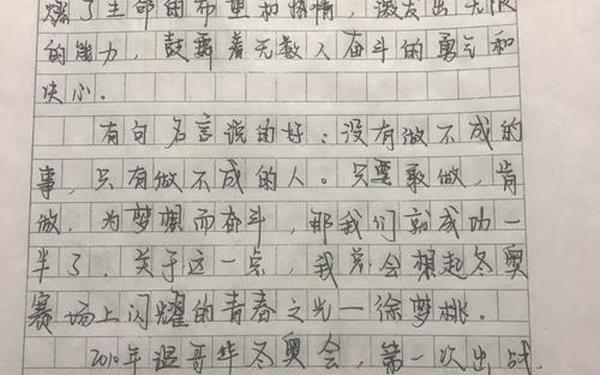 燃了生命的希望和热情，激发出无限
的能力，鼓舞着无数人奋斗的勇气和
决心。
有句名言说的好：没有做不成的
事，只有做不成的人。只要敢做，肯
做，为梦想而奋斗，那我们就成功一
半了。关于这一点，我总会想起冬奥
赛场上闪耀的青春之光—徐梦桃。
2010年温哥华冬奥会，第一次出战